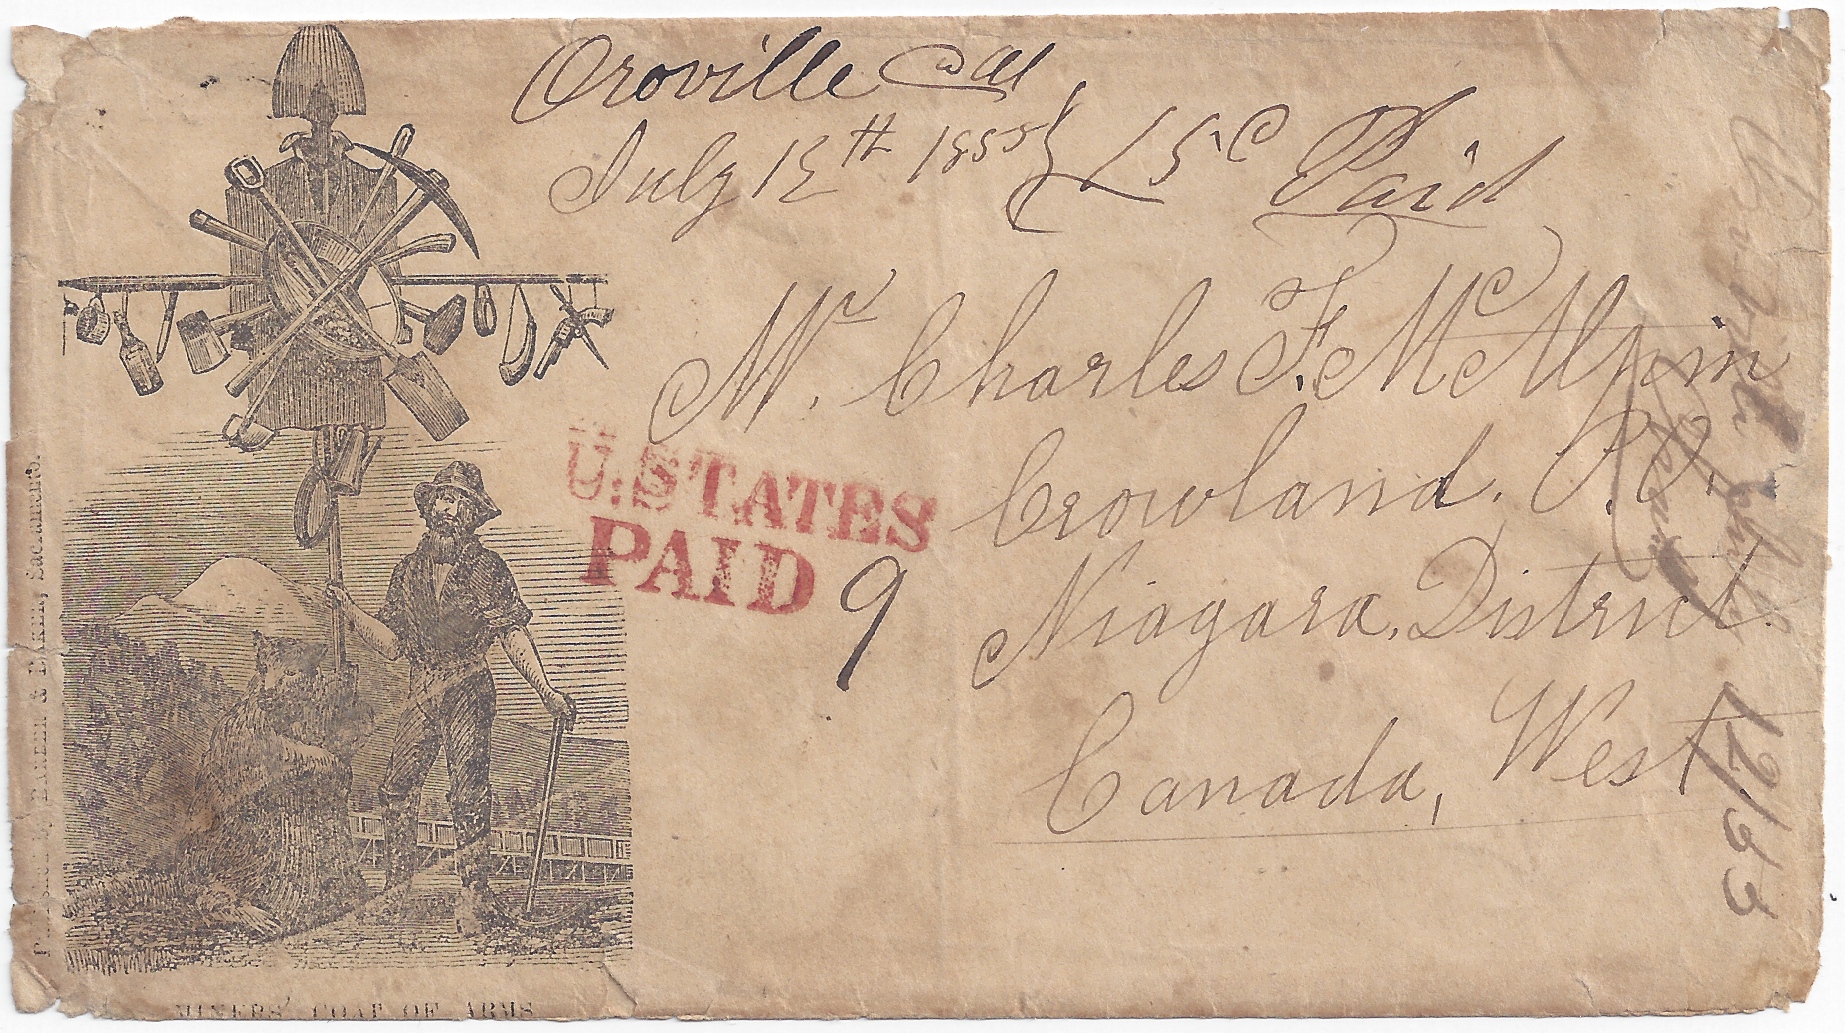 Oroville Cal
July 15th 1855 15c Paid
Mr. Charles F. McAlpin
Crowland. P.O.
Niagara. District.
Canada, West
U.STATES
PAID 9
BARBER & BAKER, Sacramento.
MINERS' COAT OF ARMS